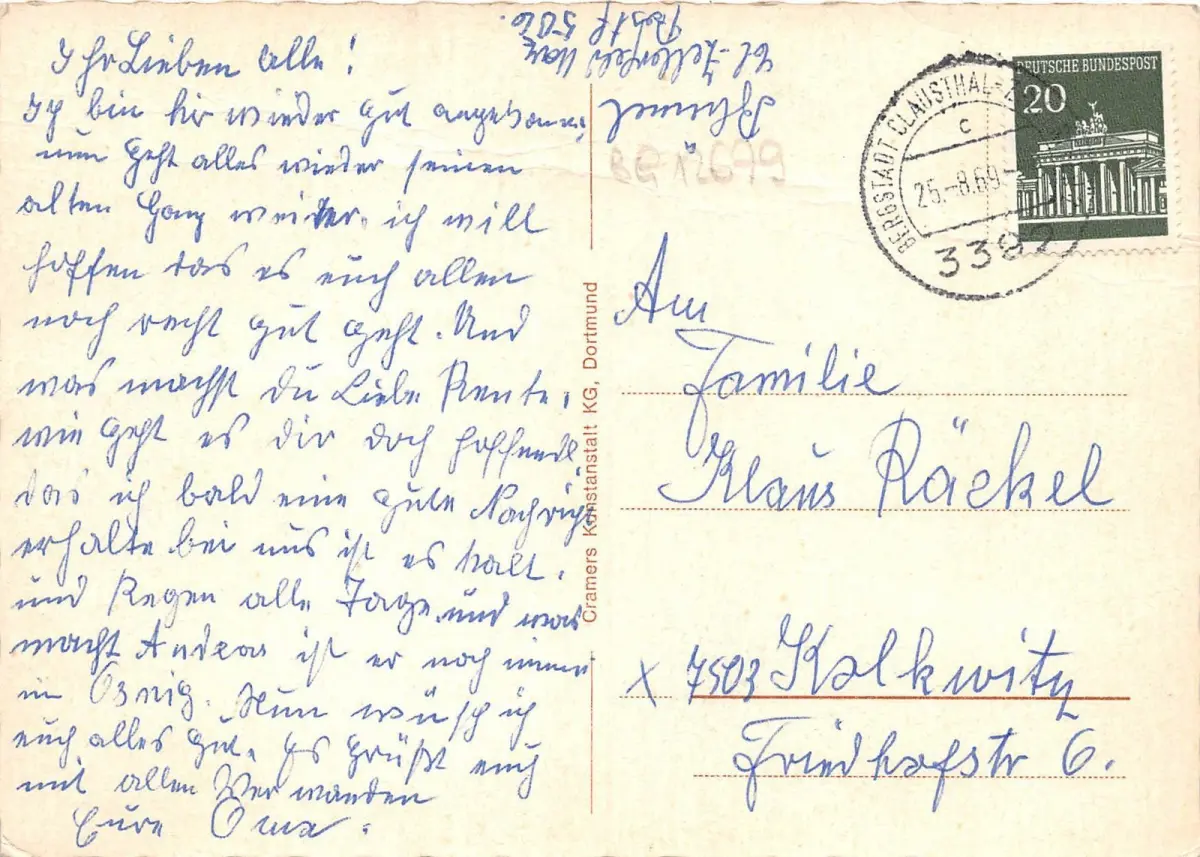 Ihr Lieben alle!
Ich bin hir wieder gut angekommen,
nun geht alles wieder seinen
alten Gang weiter. ich will
hoffen das es euch allen
noch recht gut geht. Und
was machst du Liebe Rente,
wie geht es dir doch hoffendl
das ich bald eine gute Nachricht
erhalte bei uns ist es kalt,
und Regen alle Tage, und was
macht Andreas ist er noch immer
in Ösnig. Nun wünsch ich
euch alles gut. Es grüßt euch
mit allen Verwanden
Eure Oma.
Cl-Zellerfeld Harz
Postf 506.
BG 12679
Cramers Kunstanstalt KG, Dortmund
BERGSTADT CLAUSTHAL-Z
C
25.-8.69-
3392
DEUTSCHE BUNDESPOST
20
Am
Familie
Klaus Räckel
x 7503 Kolkwitz
Friedhofstr 6.